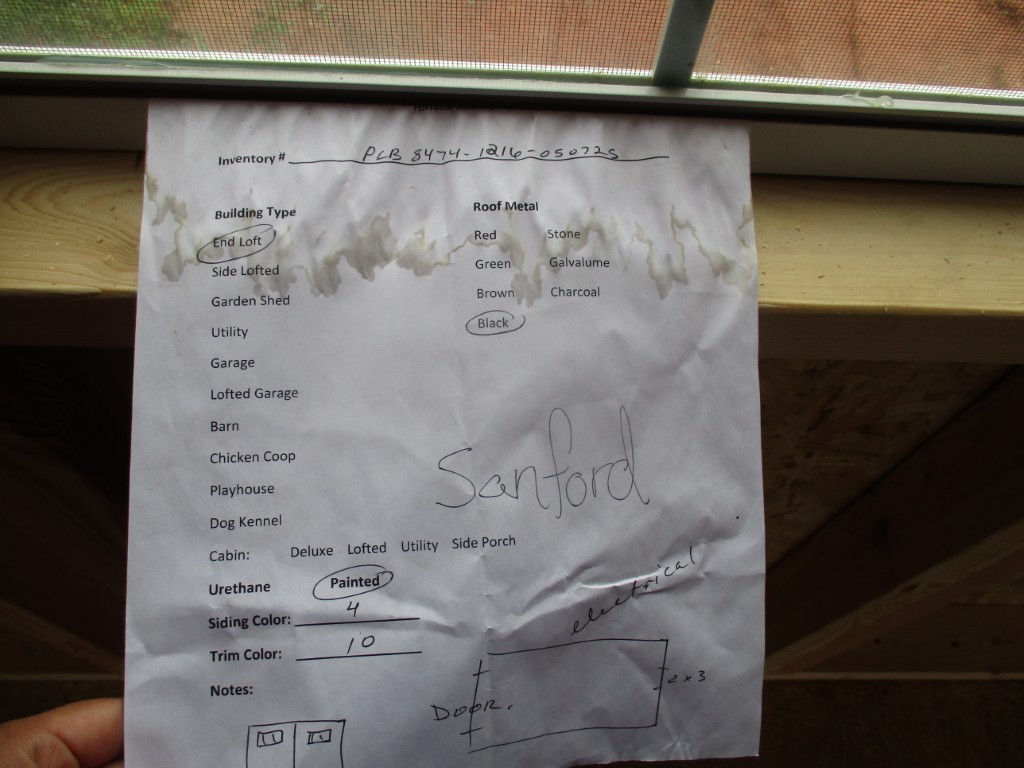 Inventory # PCB 8474-1216-050725
Building Type
End Loft
Side Lofted
Garden Shed
Utility
Garage
Lofted Garage
Barn
Chicken Coop
Playhouse
Dog Kennel
Cabin: Deluxe Lofted Utility Side Porch
Urethane Painted
Siding Color: 4
Trim Color: 10
Notes:
Roof Metal
Red Stone
Green Galvalume
Brown Charcoal
Black
Sanford
electrical
2x3
DOOR.